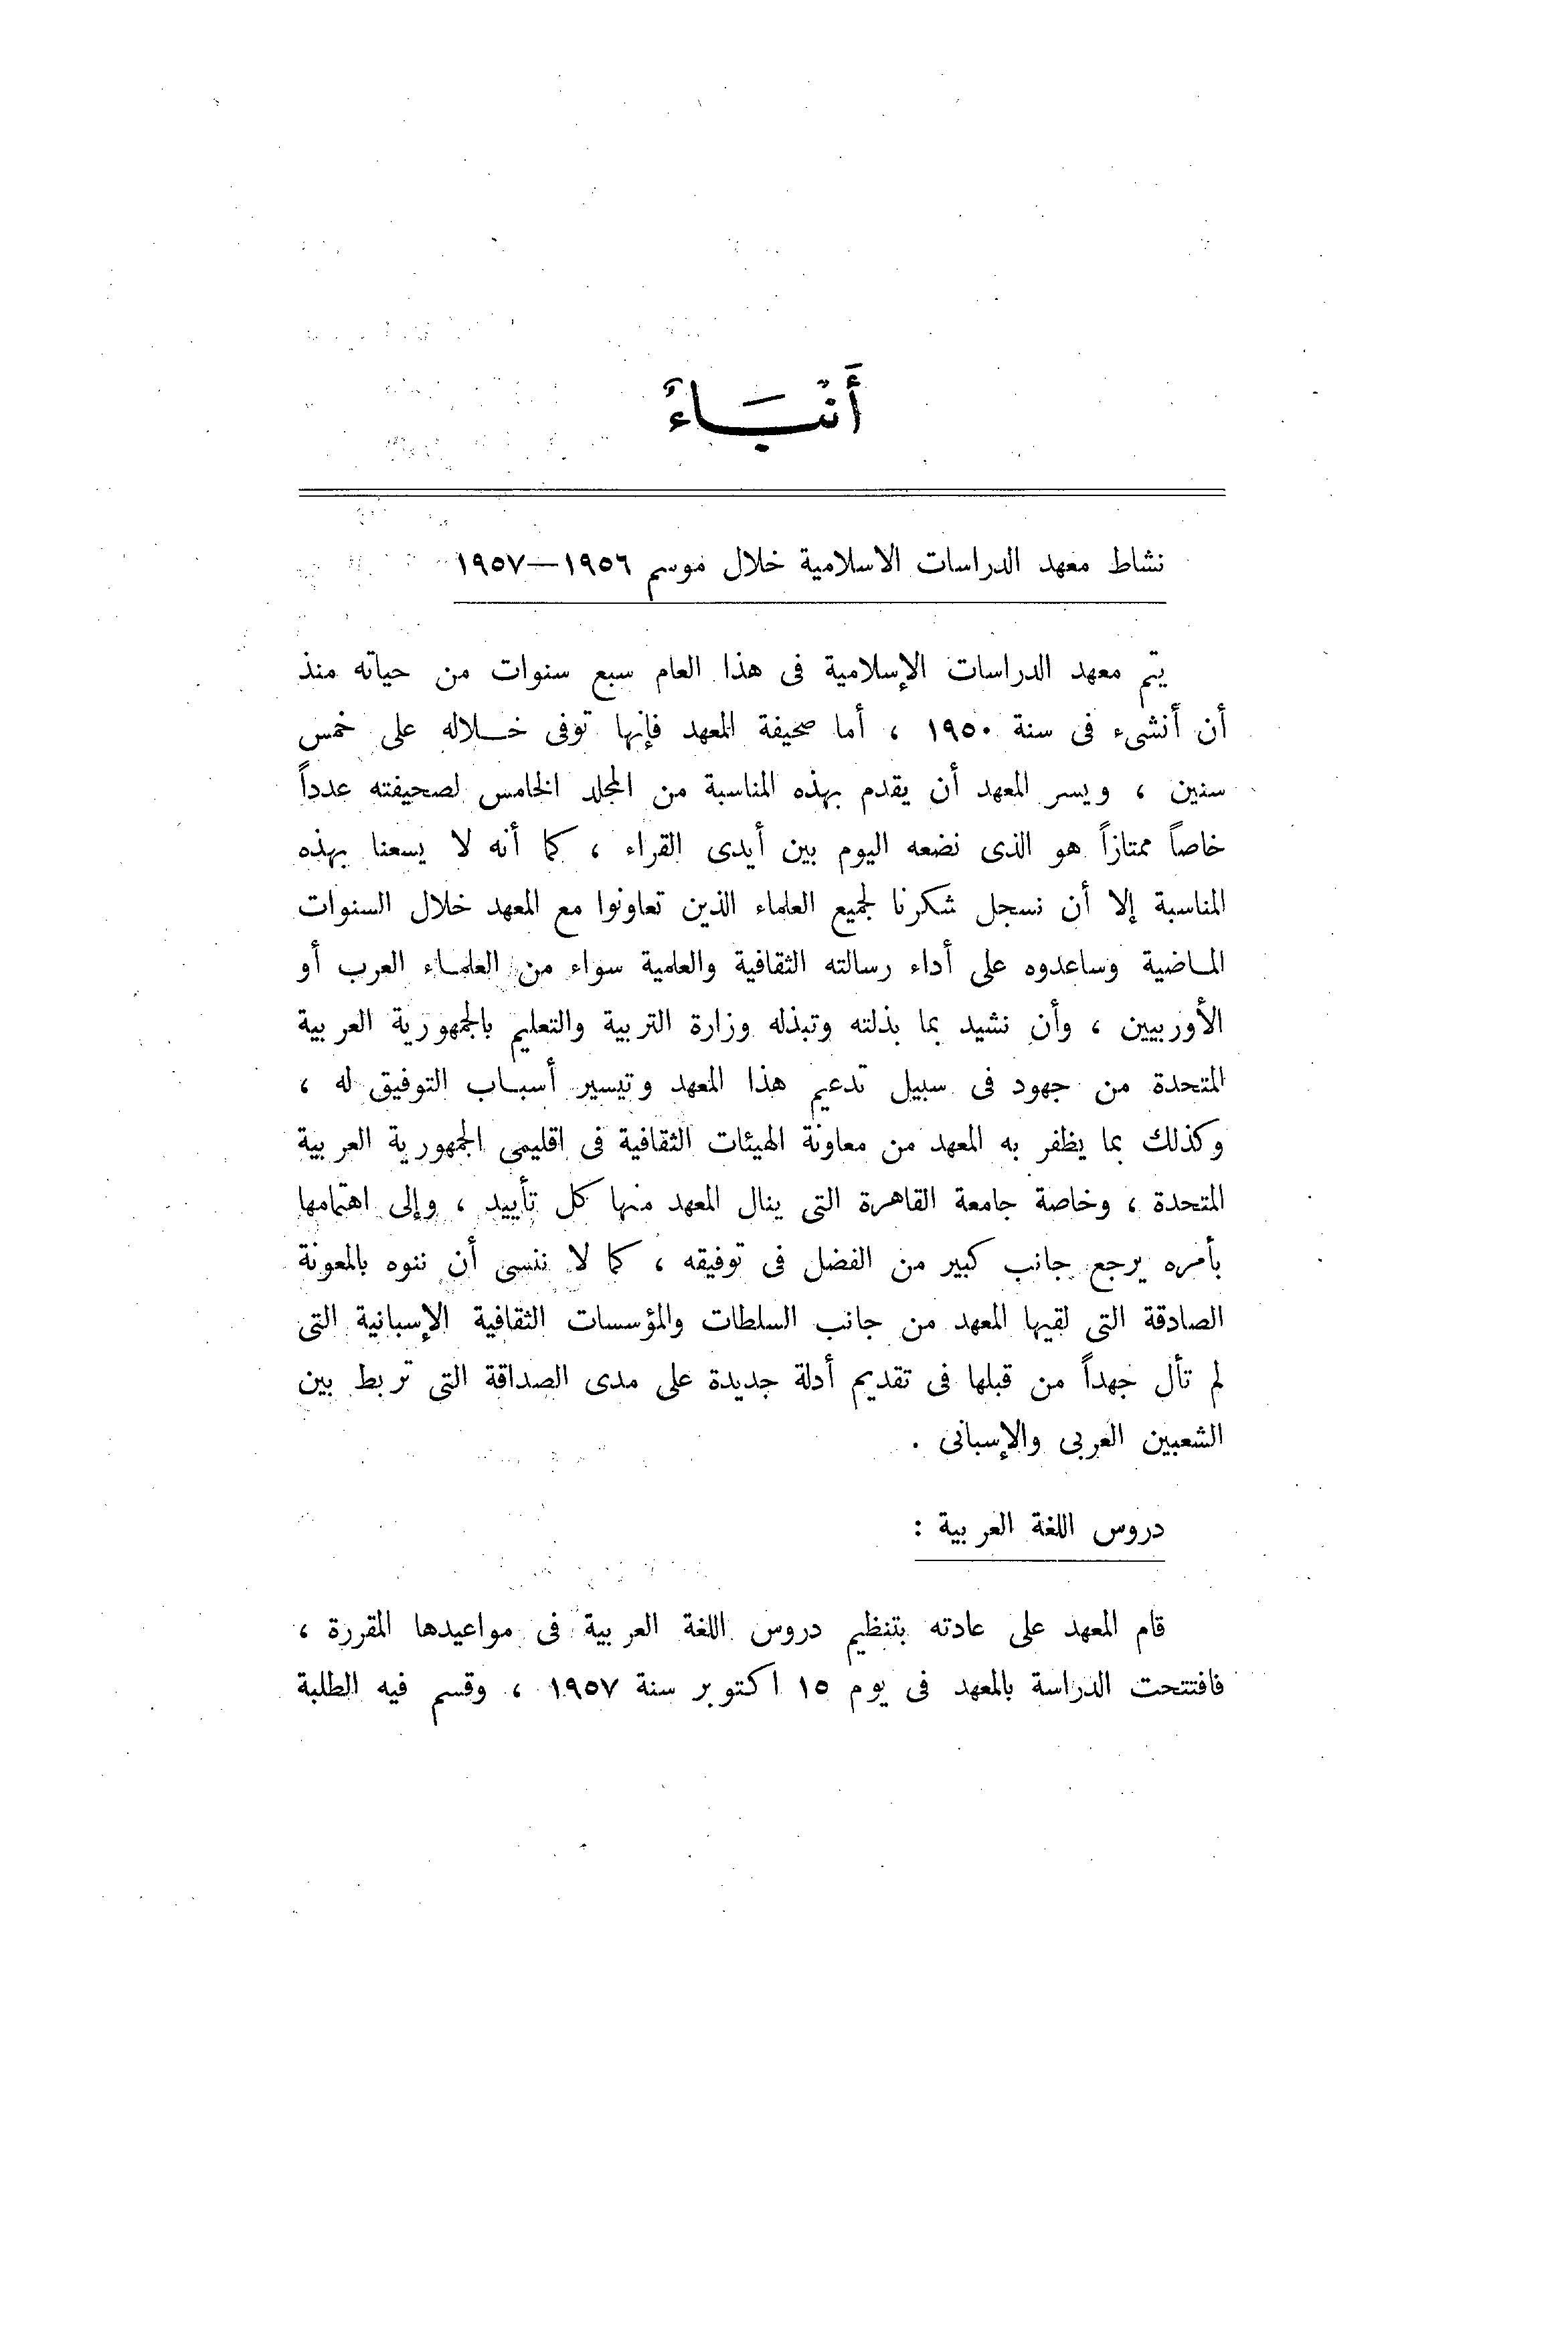 أَنْبَاءٌ
نشاط معهد الدراسات الاسلامية خلال موسم ١٩٥٦—١٩٥٧
يتم معهد الدراسات الإسلامية فى هذا العام سبع سنوات من حياته منذ
أن أنشىء فى سنة ١٩٥٠ ، أما صحيفة المعهد فإنها توفى خلاله على خمس
سنين ، ويسر المعهد أن يقدم بهذه المناسبة من المجلد الخامس لصحيفته عدداً
خاصاً ممتازاً هو الذى نضعه اليوم بين أيدى القراء ، كما أنه لا يسعنا بهذه
المناسبة إلا أن نسجل شكرنا لجميع العلماء الذين تعاونوا مع المعهد خلال السنوات
الماضية وساعدوه على أداء رسالته الثقافية والعلمية سواء من العلماء العرب أو
الأوربيين ، وأن نشيد بما بذلته وتبذله وزارة التربية والتعليم بالجمهورية العربية
المتحدة من جهود فى سبيل تدعيم هذا المعهد وتيسير أسباب التوفيق له ،
وكذلك بما يظفر به المعهد من معاونة الهيئات الثقافية فى اقليمى الجمهورية العربية
المتحدة ، وخاصة جامعة القاهرة التى ينال المعهد منها كل تأييد ، وإلى اهتمامها
بأمره يرجع جانب كبير من الفضل فى توفيقه ، كما لا ننسى أن ننوه بالمعونة
الصادقة التى لقيها المعهد من جانب السلطات والمؤسسات الثقافية الإسبانية التى
لم تأل جهداً من قبلها فى تقديم أدلة جديدة على مدى الصداقة التى تربط بين
الشعبين العربى والإسبانى .
دروس اللغة العربية :
قام المعهد على عادته بتنظيم دروس اللغة العربية فى مواعيدها المقررة ،
فافتتحت الدراسة بالمعهد فى يوم ١٥ اكتوبر سنة ١٩٥٧ ، وقسم فيه الطلبة